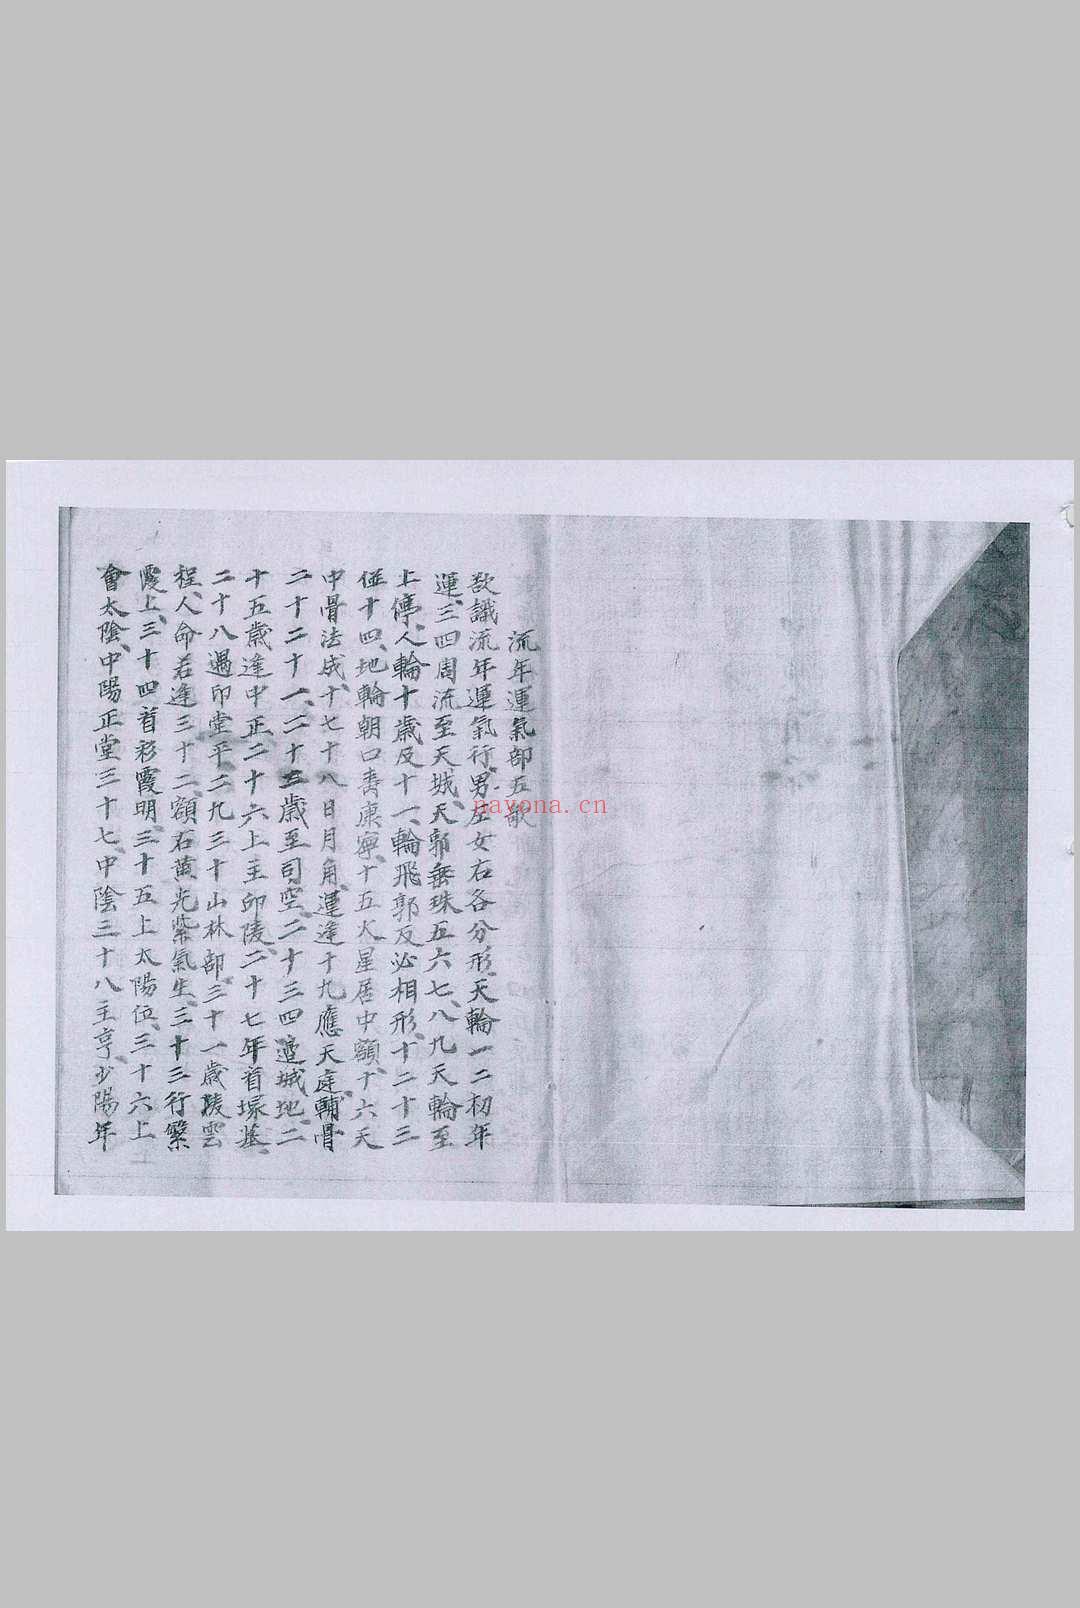 流年運氣部五歌
欲識流年運氣行、男左女右各分形、天輪一二初年
運、三四周流至天城、天郭垂珠五六七、八九天輪至
上停、人輪十歲及十一、輪飛郭反必相形、十二十三
並十四、地輪朝口壽康寧、十五火星居中額、十六天
中骨法成、十七十八日月角、運逢十九應天庭、輔骨
二十二十一、二十二歲至司空、二十三四邊城地、二
十五歲逢中正、二十六上主印陵、二十七年看塚墓、
二十八遇印堂平、二九三十山林部、三十一歲陵雲
程、人命若逢三十二、額右黃光紫氣生、三十三行繁
霞上、三十四看彩霞明、三十五上太陽位、三十六上
會太陰、中陽正堂三十七、中陰三十八主亨、少陽年
nayona.cn